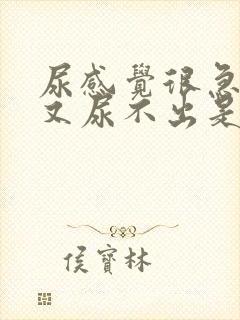 尿感覺很急
又尿不出是
侯寶林